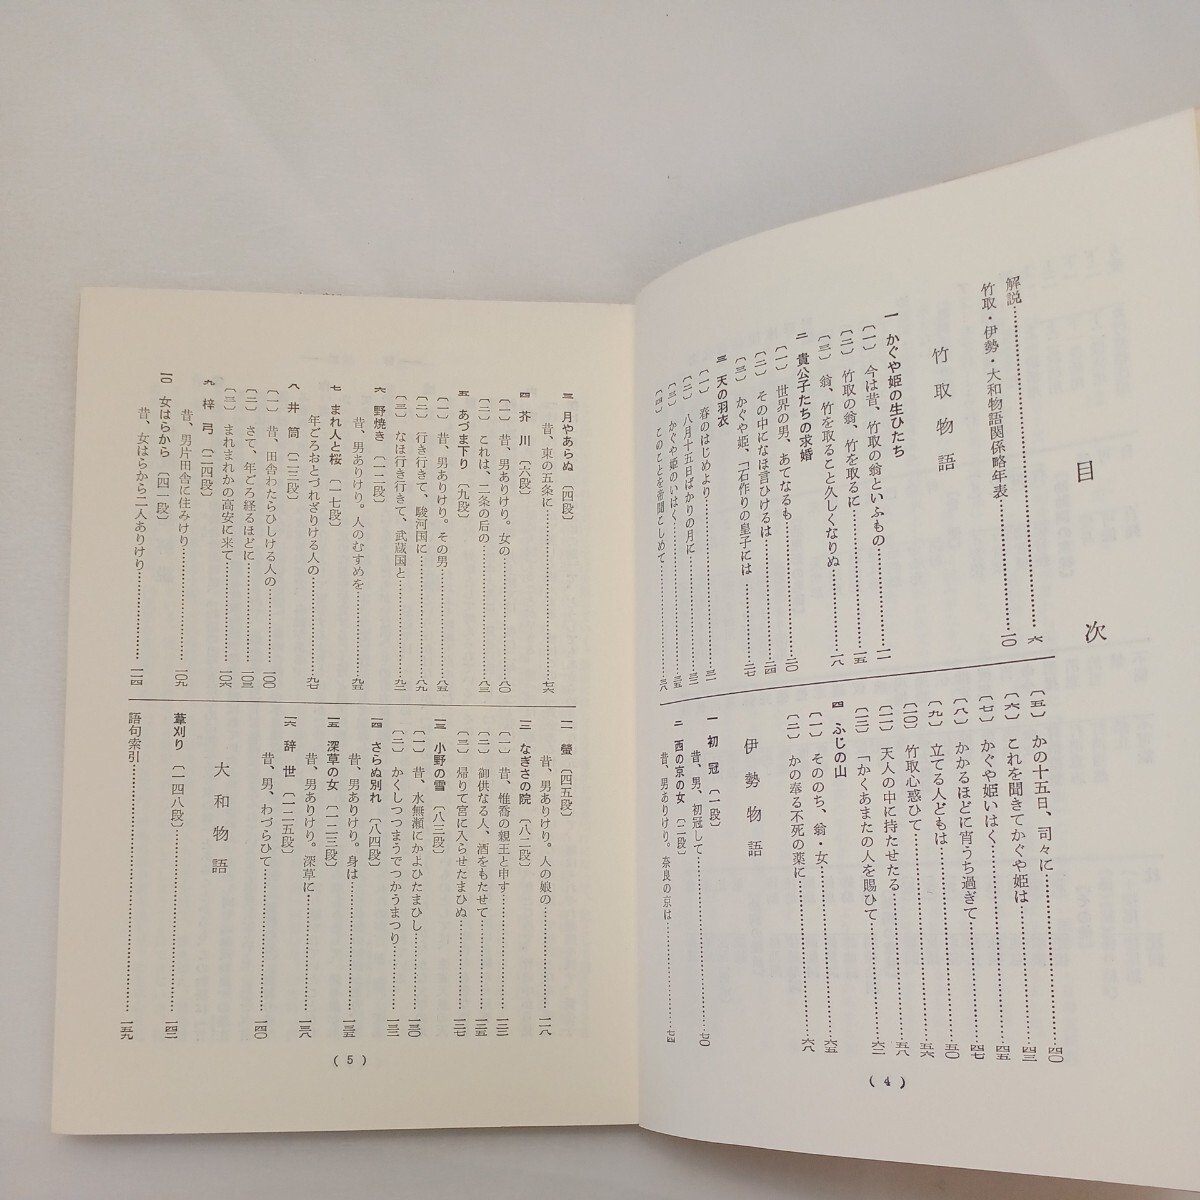 目次
解説……六
竹取・伊勢・大和物語関係略年表……一〇
竹取物語
一 かぐや姫の生ひたち
〔一〕 今は昔、竹取の翁といふもの……一一
〔二〕 竹取の翁、竹を取るに……一五
〔三〕 翁、竹を取ること久しくなりぬ……一八
二 貴公子たちの求婚
〔一〕 世界の男、あてなるも……二〇
〔二〕 その中になほ言ひけるは……二四
〔三〕 かぐや姫、「石作りの皇子には……二七
三 天の羽衣
〔一〕 春のはじめより……三一
〔二〕 八月十五日ばかりの月に……三二
〔三〕 かぐや姫のいはく……三五
〔四〕 このことを帝聞こしめて……三八
〔五〕 かの十五日、司々に……四〇
〔六〕 これを聞きてかぐや姫は……四三
〔七〕 かぐや姫いはく……四五
〔八〕 かかるほどに宵うち過ぎて……四七
〔九〕 立てる人どもは……五〇
〔一〇〕 竹取心惑ひて……五六
〔一一〕 天人の中に持たせたる……五八
〔一二〕 「かくあまたの人を賜ひて……六二
四 ふじの山
〔一〕 そののち、翁・女……六五
〔二〕 かの奉る不死の薬に……六八
伊勢物語
一 初冠〔一段〕
昔、男、初冠して……七〇
二 西の京の女〔二段〕
昔、男ありけり。奈良の京は……七四
(4)
三 月やあらぬ〔四段〕
昔、東の五条に……七六
四 芥川〔六段〕
〔一〕 昔、男ありけり。女の……八〇
〔二〕 これは、二条の后の……八三
五 あづま下り〔九段〕
〔一〕 昔、男ありけり。その男……八五
〔二〕 行き行きて、駿河国に……八九
〔三〕 なほ行き行きて、武蔵国と……九二
六 野焼き〔一二段〕
昔、男ありけり。人のむすめを……九五
七 まれ人と桜〔一七段〕
年ごろおとづれざりける人の……九七
八 井筒〔二三段〕
〔一〕 昔、田舎わたらひしける人の……一〇〇
〔二〕 さて、年ごろ経るほどに……一〇三
〔三〕 まれまれかの高安に来て……一〇六
九 梓弓〔二四段〕
昔、男片田舎に住みけり……一〇九
一〇 女はらから〔四一段〕
昔、女はらから二人ありけり……一一四
一一 螢〔四五段〕
昔、男ありけり。人の娘の……一一八
一二 なぎさの院〔八二段〕
〔一〕 昔、惟喬の親王と申す……一二二
〔二〕 御供なる人、酒をもたせて……一二五
〔三〕 帰りて宮に入らせたまひぬ……一二七
一三 小野の雪〔八三段〕
〔一〕 昔、水無瀬にかよひたまひし……一三〇
〔二〕 かくしつつまうでつかうまつり……一三二
一四 さらぬ別れ〔八四段〕
昔、男ありけり。身は……一三五
一五 深草の女〔一二三段〕
昔、男ありけり。深草に……一三八
一六 辞世〔一二五段〕
昔、男、わづらひて……一四〇
大和物語
葦刈り〔一四八段〕……一四二
語句索引……一五九
(5)